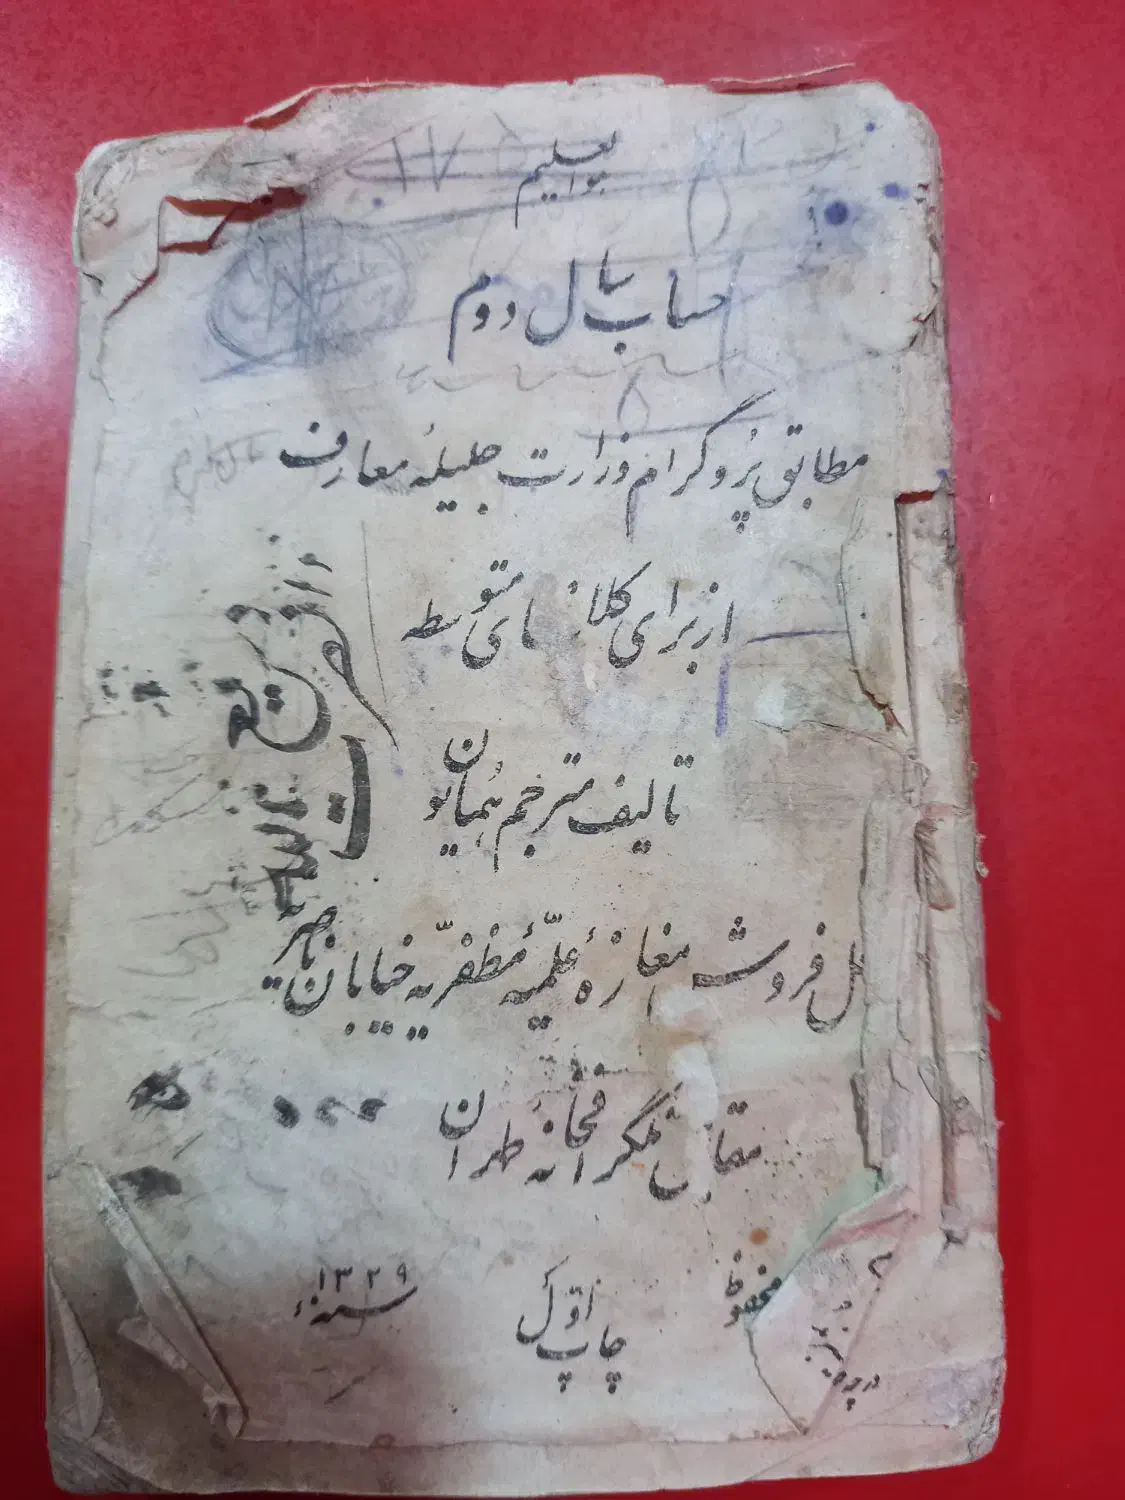 تعلیم
حساب سال دوم
مطابق پُروگرام وزارت جلیلهٔ معارف
از برای کلاسهای متوسطه
تالیف مترجم هُمایون
محل فروش مغازهٔ علمیّهٔ مُظفّریّه خیابان ناصریّه
مقابل تلگرافخانهٔ طهران
محفوظ
چاپ اوّل
سنهٔ ۱۳۲۹